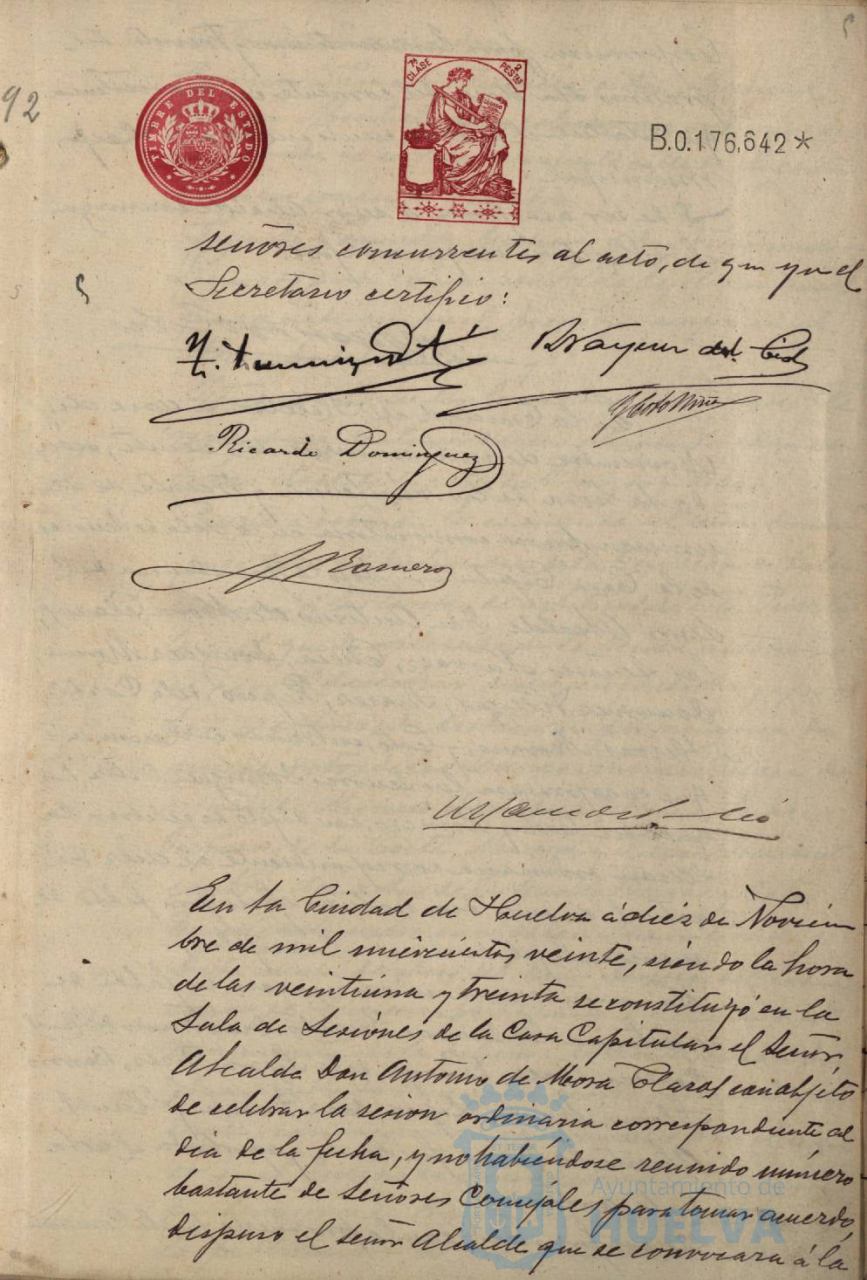 92
TIMBRE DEL ESTADO
7ª CLASE 2 PESTAS
B.0.176,642*
señores concurrentes al acto, de que yo el
Secretario certifico:
Ricardo Dominguez
Romero
En la Ciudad de Huelva á diéz de Noviem
bre de mil nuevecientos veinte, siéndo la hora
de las veintiuna y treinta se constituyó en la
Sala de Sesiónes de la Casa Capitular el Señor
Alcalde Don Antonio de Mora Claros con objéto
de celebrar la sesion ordinaria correspondiente al
dia de la fecha, y no habiéndose reunido número
bastante de Señores Concejáles para tomar acuerdo,
dispuso el señor Alcalde que se convocara á la
Ayuntamiento de
HUELVA